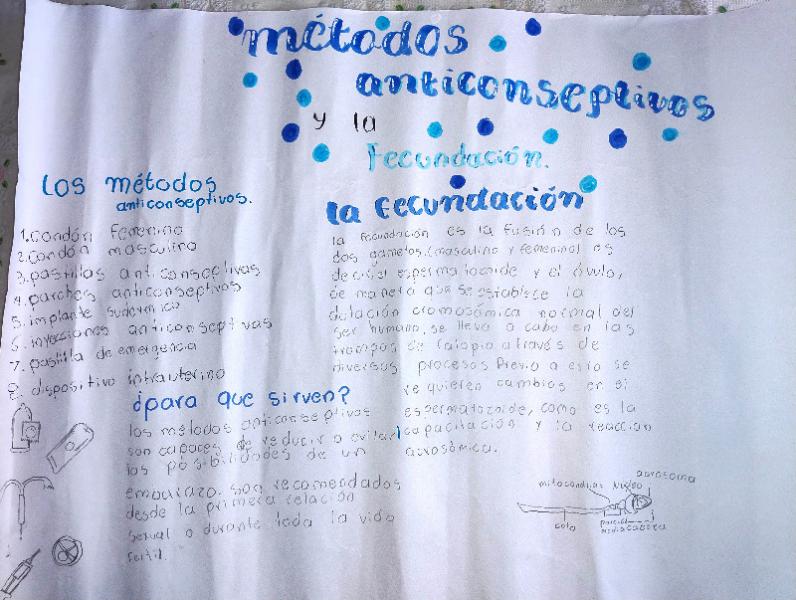 métodos
anticonseptivos
y la
Fecundación.
Los métodos
anticonseptivos.
1. condón femenino
2. condón masculino
3. pastillas anticonseptivas
4. parches anticonseptivos
5. implante
6. inyecciones anticonseptivas
7. pastilla de emergencia
8. dispositivo intrauterino
¿para que sirven?
los métodos anticonseptivos
son capaces de reducir o evitar
las posibilidades de un
embarazo. son recomendados
desde la primera relación
sexual o durante toda la vida
fertil.
la fecundación
la fecundación es la fusión de los
dos gametos (masculino y femenino) es
decir, el espermatozoide y el óvulo,
de manera que se establece la
dotación cromosómica normal del
ser humano, se lleva a cabo en las
trompas de falopio a través de
diversos procesos Previo a esto se
requieren cambios en el
espermatozoide, como es la
capacitación y la reacción
acrosómica.
acrosoma
mitocondrias Núcleo
cola
cabeza